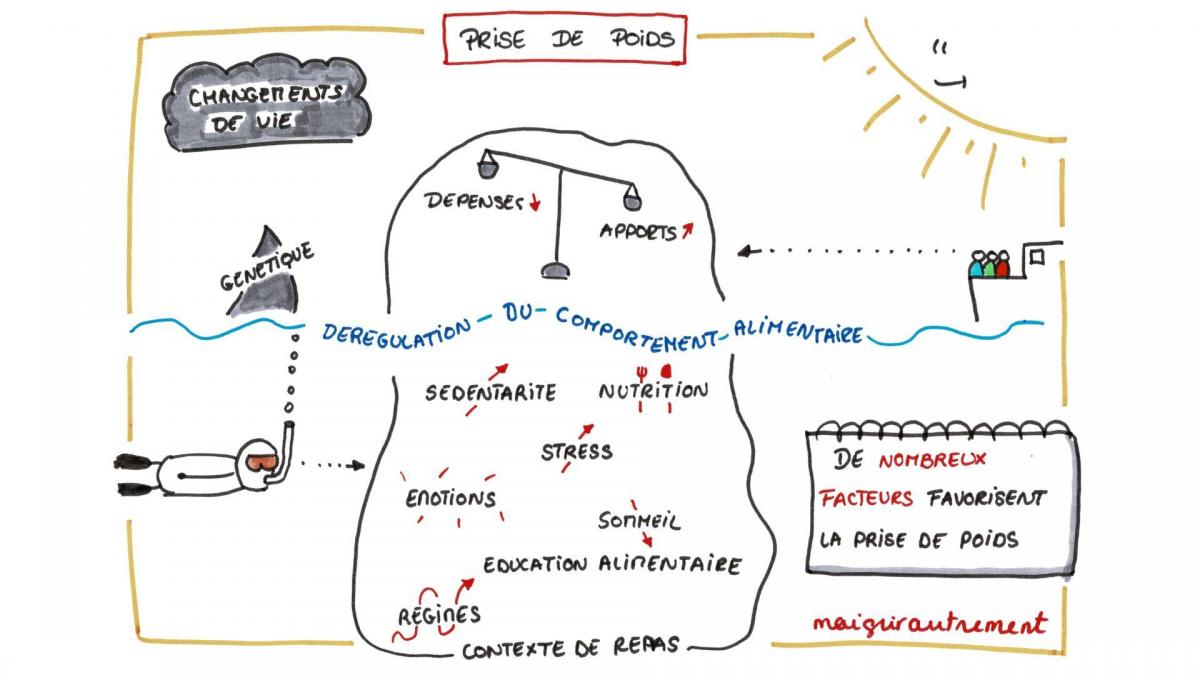 PRISE DE POIDS
CHANGEMENTS
DE VIE
DEPENSES
APPORTS
GENETIQUE
DEREGULATION - DU - COMPORTEMENT - ALIMENTAIRE
SEDENTARITE
NUTRITION
STRESS
EMOTIONS
SOMMEIL
EDUCATION ALIMENTAIRE
REGIMES
CONTEXTE DE REPAS
DE NOMBREUX
FACTEURS FAVORISENT
LA PRISE DE POIDS
maigirautrement